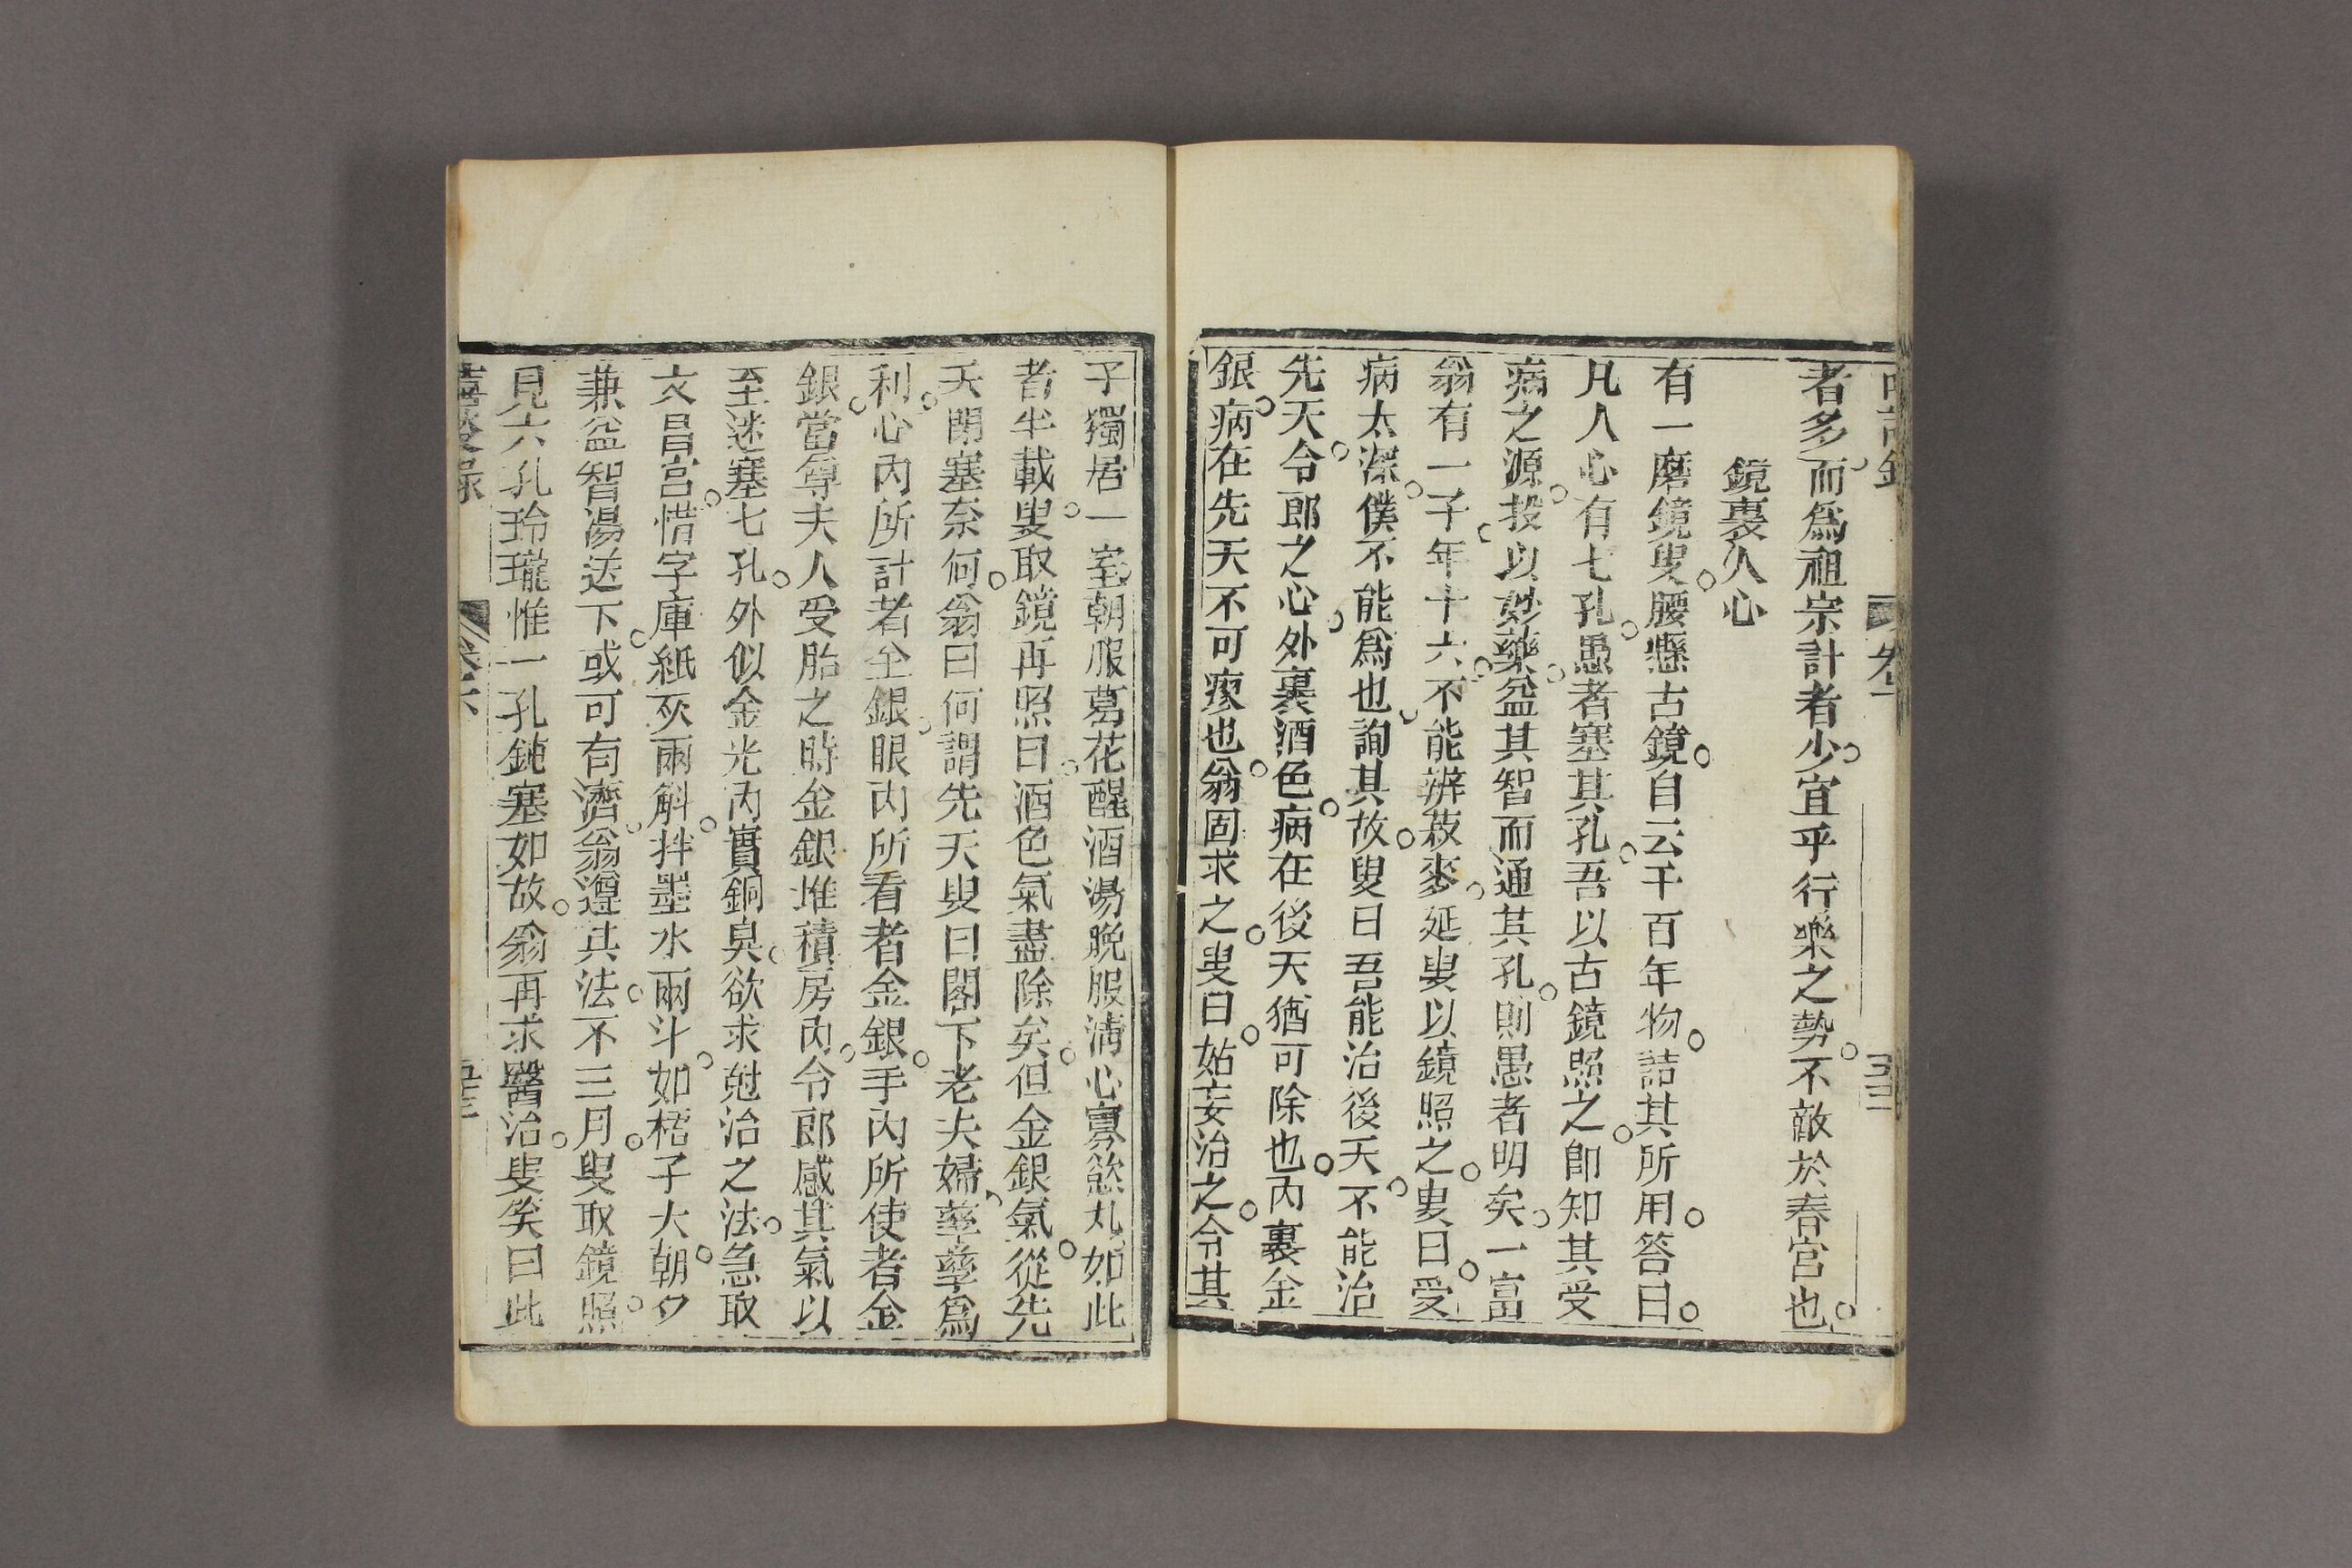 者多而爲祖宗計者少宜乎行樂之勢不敵於春宮也
鏡裏人心
有一磨鏡叟腰懸古鏡自云千百年物詰其所用答曰
凡人心有七孔愚者塞其孔吾以古鏡照之即知其受
病之源投以妙藥益其智而通其孔則愚者明矣一富
翁有一子年十六不能辨菽麥延叟以鏡照之叟曰受
病太深僕不能爲也詢其故叟曰吾能治後天不能治
先天令郎之心外裏酒色病在後天猶可除也内裏金
銀病在先天不可瘳也翁固求之叟曰姑妄治之令其
子獨居一室朝服葛花醒酒湯晚服淸心寡慾丸如此
者半載叟取鏡再照曰酒色氣盡除矣但金銀氣從先
天閉塞奈何翁曰何謂先天叟曰閣下老夫婦孳孳爲
利心内所計者金銀眼内所看者金銀手内所使者金
銀當尊夫人受胎之時金銀堆積房内令郎感其氣以
至迷塞七孔外似金光内實銅臭欲求尅治之法急取
文昌宮惜字庫紙灰兩斛拌墨水兩斗如梧子大朝夕
兼益智湯送下或可有濟翁遵其法不三月叟取鏡照
見六孔玲瓏惟一孔鈍塞如故翁再求醫治叟笑曰此
嘻談錄
卷下